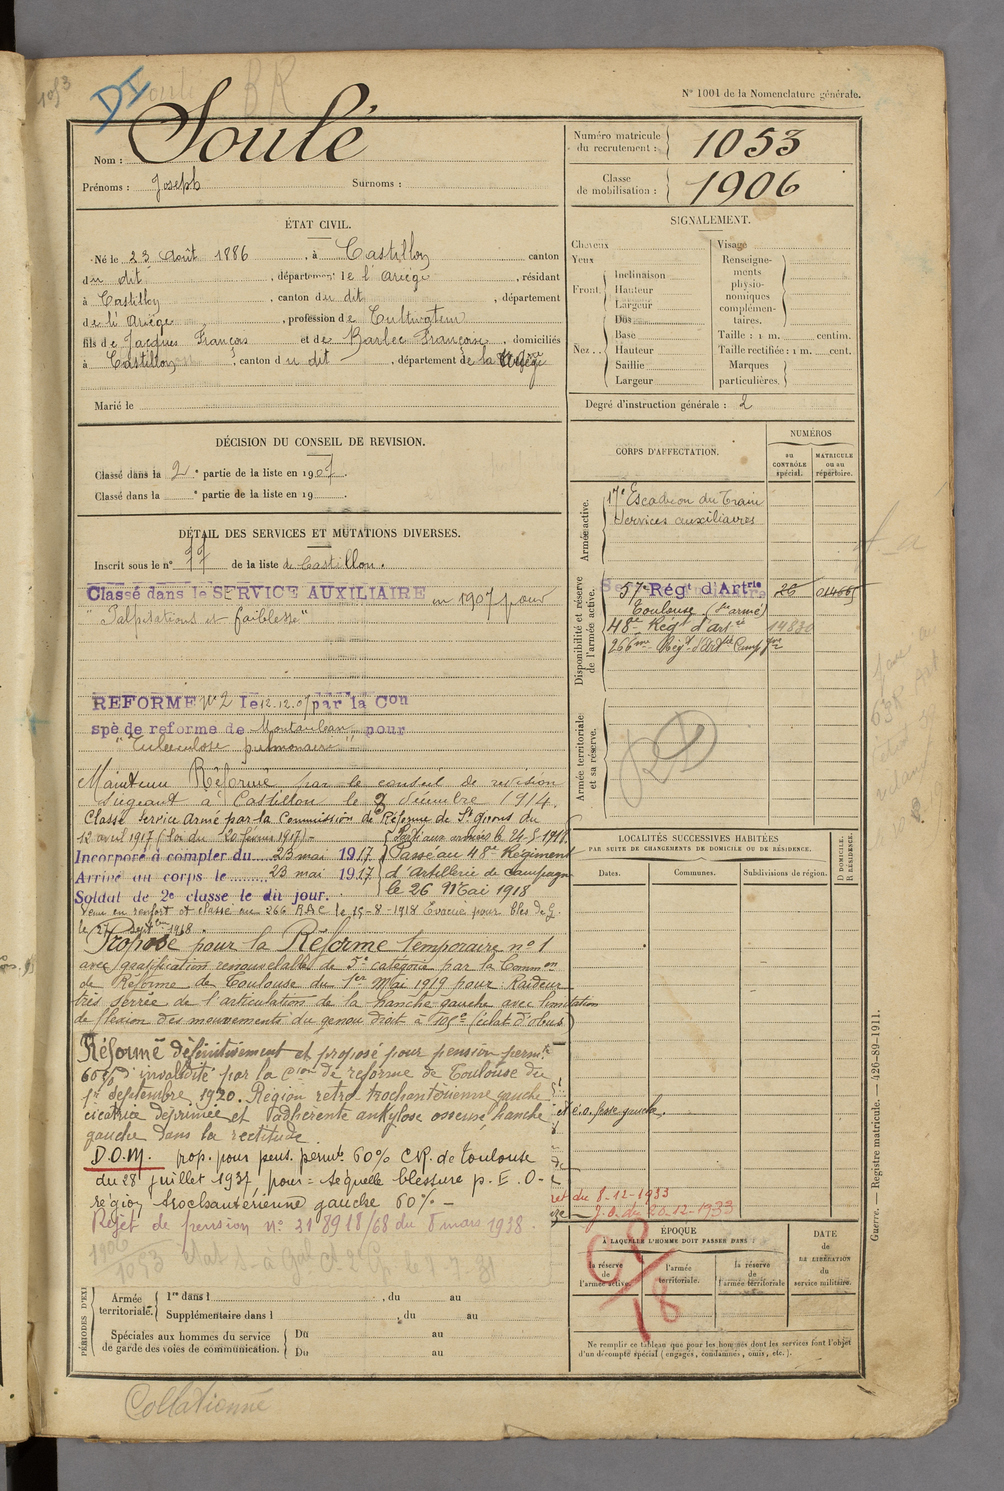 1053
DI
BR
N° 1001 de la Nomenclature générale.
Nom : Soulé
Prénoms : Joseph Surnoms :
Numéro matricule du recrutement : 1053
Classe de mobilisation : 1906
ÉTAT CIVIL.
Né le 23 Août 1886, à Castillon canton
du dit, département de l'Ariège, résidant
à Castillon, canton du dit, département
de l'Ariège, profession de Cultivateur
fils de Jacques François et de Barbec Françoise, domiciliés
à Castillon, canton du dit, département de la Ariège
Marié le
SIGNALEMENT.
Cheveux
Yeux
Front : Inclinaison
Hauteur
Largeur
Nez : Dos
Base
Hauteur
Saillie
Largeur
Visage
Renseignements physionomiques complémentaires.
Taille : 1 m. centim.
Taille rectifiée : 1 m. cent.
Marques particulières.
Degré d'instruction générale : 2
DÉCISION DU CONSEIL DE REVISION.
Classé dans la 2e partie de la liste en 1907.
Classé dans la e partie de la liste en 19 .
DÉTAIL DES SERVICES ET MUTATIONS DIVERSES.
Inscrit sous le n° 11 de la liste de Castillon.
Classé dans le SERVICE AUXILIAIRE en 1907 pour
"Palpitations et faiblesse"
REFORME N° 2 le 12.12.07 par la Con
spé de reforme de Montauban pour
"Tuberculose pulmonaire"
Maintenu Réformé par le conseil de revision
siégeant à Castillon le 9 décembre 1914.
Classé Service Armé par la Commission de Réforme de St Girons du
12 avril 1917 (loi du 20 février 1917)
Parti aux armées le 24-5-1918.
Incorporé à compter du 23 mai 1917 Passé au 48e Régiment
Arrivé au corps le 23 mai 1917 d'Artillerie de Campagne
Soldat de 2e classe le du jour. le 26 Mai 1918
Venu en renfort et classé au 266 RAC le 15-8-1918 Evacué pour bles de G.
le 27 septbre 1918.
Proposé pour la Réforme temporaire n° 1
avec gratification renouvelable de 5e catégorie par la Common
de Réforme de Toulouse du 1er Mai 1919 pour : Raideur
très serrée de l'articulation de la hanche gauche avec limitation
de flexion des mouvements du genou droit à 105° (éclat d'obus)
Réformé définitivement et proposé pour pension permte
60% d'invalidité par la Cion de reforme de Toulouse du
1er Septembre 1920. Région retro trochantérienne gauche
cicatrice déprimée et adhérente ankylose osseuse hanche
gauche dans la rectitude
D.O.M. prop. pour pens. permte 60% C.R. de Toulouse
du 28 juillet 1937 pour : séquelle blessure p. E. O.
région trochantérienne gauche 60% -
Rejet de pension n° 218918/68 du 8 mars 1938.
CORPS D'AFFECTATION.
NUMÉROS
au CONTRÔLE spécial.
MATRICULE ou au répertoire.
Armée active.
17e Escadron du Train
Services auxiliaires
Disponibilité et réserve de l'armée active.
57e Régt d'Artrie
Toulouse (Sce armé)
48e Régt d'artie 14830
266me Régt d'Artie Campgne
Armée territoriale et sa réserve.
RD
LOCALITÉS SUCCESSIVES HABITÉES
PAR SUITE DE CHANGEMENTS DE DOMICILE OU DE RÉSIDENCE.
Dates.
Communes.
Subdivisions de région.
D DOMICILE.
R RÉSIDENCE.
du 8-12-1933
J.O. du 20-12-1933
CP/18
ÉPOQUE
À LAQUELLE L'HOMME DOIT PASSER DANS :
la réserve de l'armée active.
l'armée territoriale.
la réserve de l'armée territoriale
DATE de LA LIBÉRATION du service militaire.
Ne remplir ce tableau que pour les hommes dont les services font l'objet
d'un décompte spécial (engagés, condamnés, omis, etc.).
PÉRIODES D'EXE
Armée territoriale. 1re dans l , du au
Supplémentaire dans l , du au
Spéciales aux hommes du service de garde des voies de communication. Du au
Du au
Guerre. — Registre matricule. — 426-89-1911.
Collationné